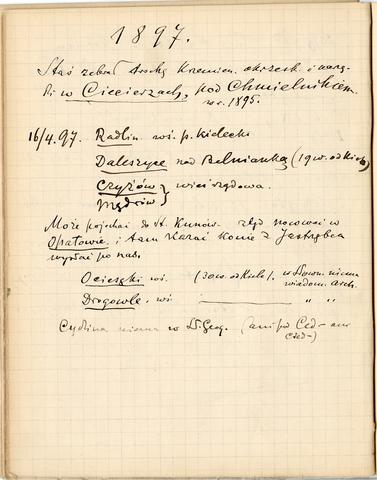 1897.
Staś zebrał trochę krzemien. okrzesk. i narzę-
dzi w Ciecierzach, pod Chmielnikiem
w r. 1895.
16/4.97. Radlin wś. p. kielecki
Daleszyce nad Belnianką (19 w. od Kielc)
Czyżów } wieś rządowa.
Mędrów
Może pojechać do st. Kunów. ztąd nocować w
Opatowie i tam kazać konie z Jastrzębca
wysłać po nas.
Ociesęki wś. (30 w. od Kielc). w Słown. niema
wiadom. arch.
Drogowle. wś ——— „ „
Cydzina niema w Sł. Geog. (ani pod Ced- ani
Czed-)